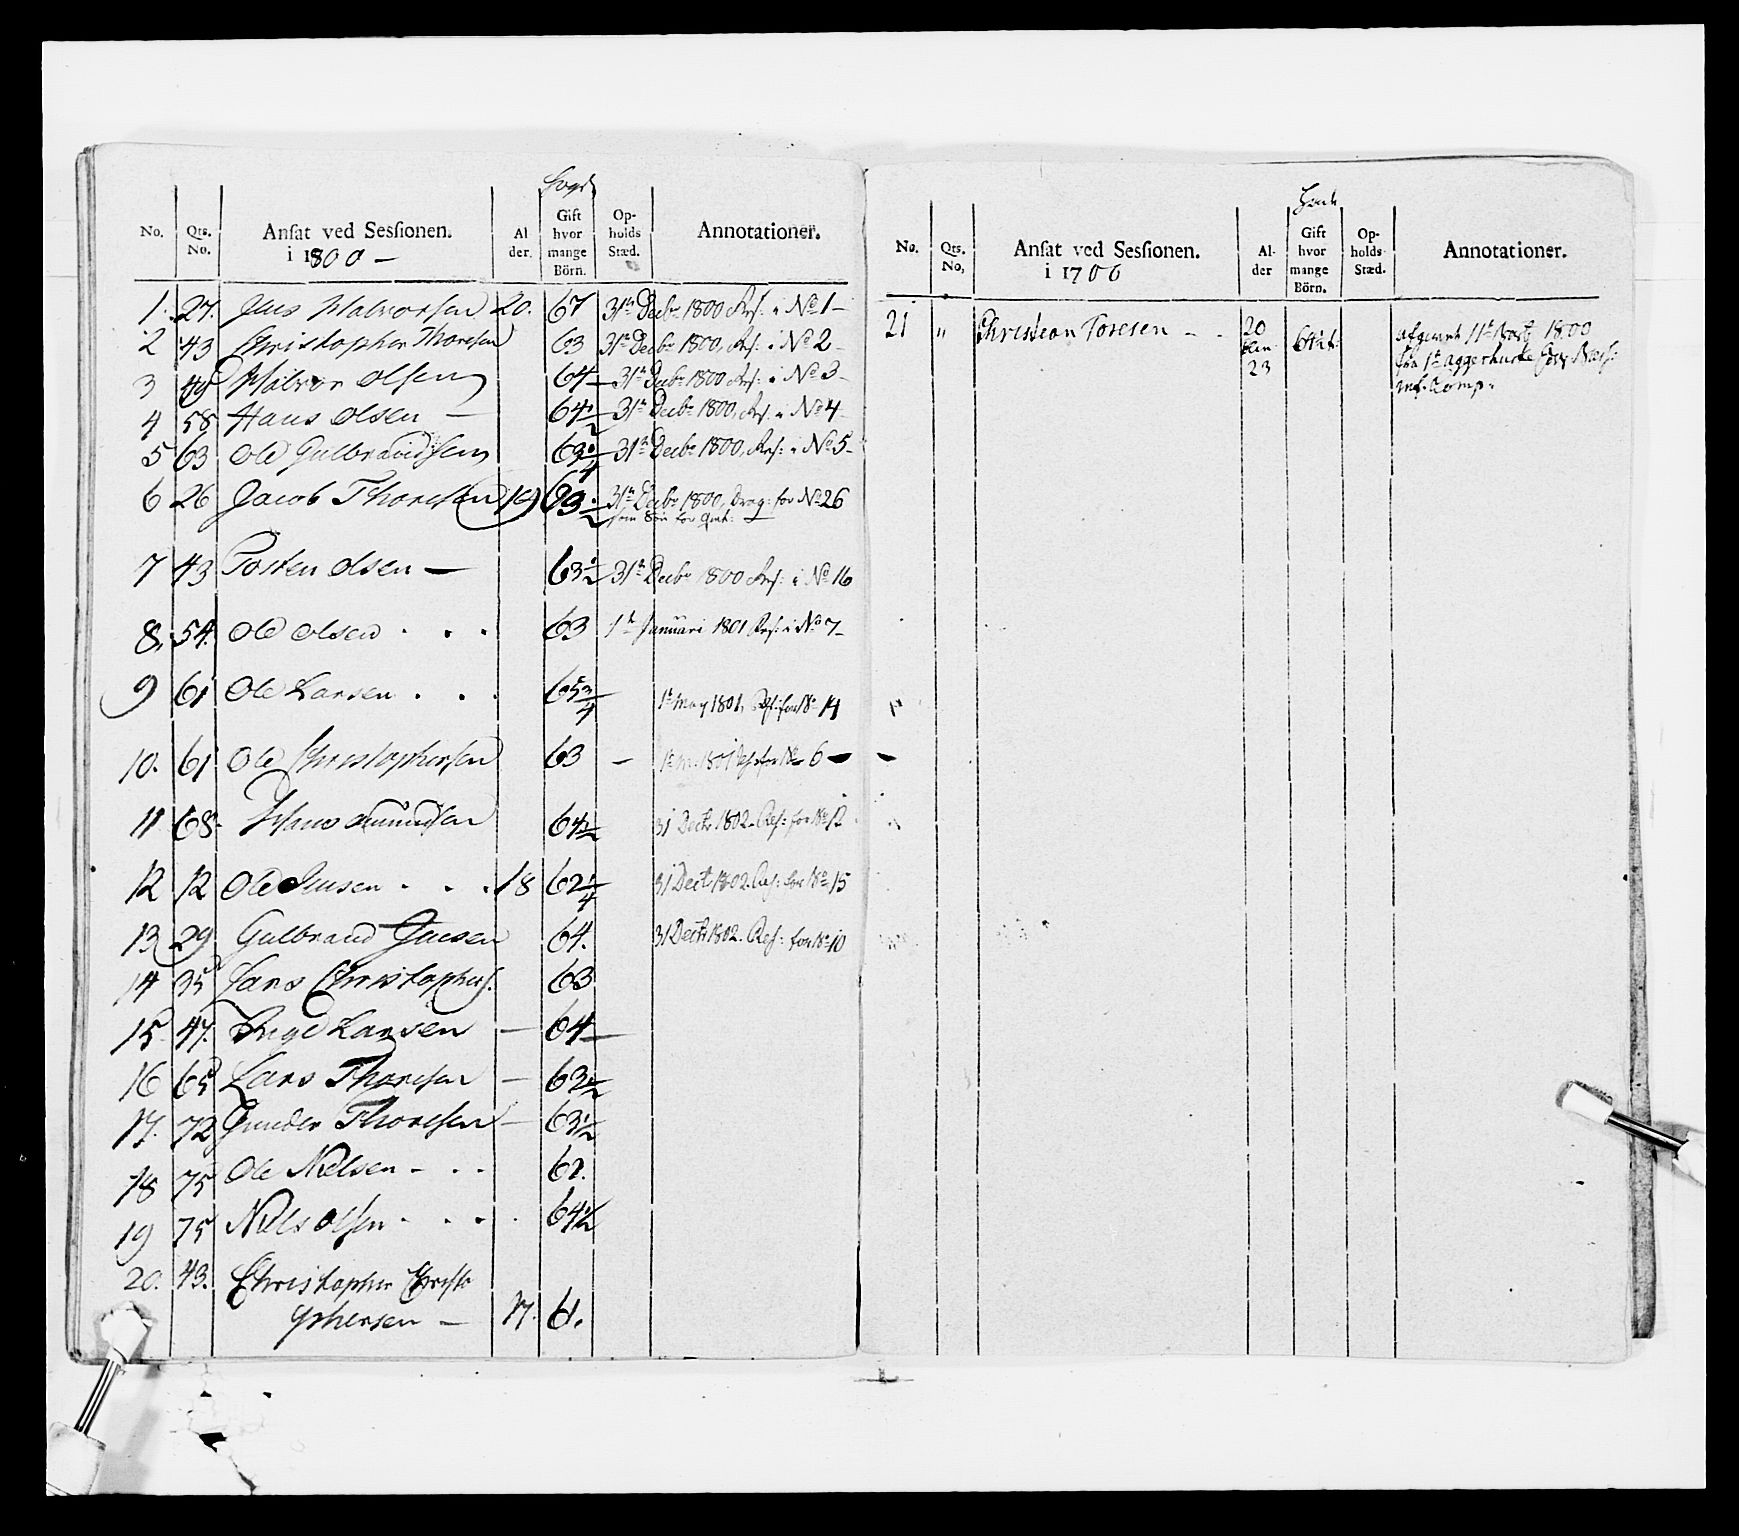 Høyde
No. Qts. No. Ansat ved Sessionen. i 1800 – Al der. Gift hvor mange Börn. Op- holds Stæd. Annotationer.
1. 27. Halvorsen 20. 67 31te Decbr 1800 Res: i No 1 –
2 43 Christopher Thoresen 63 31te Decbr 1800, Res: i No 2 –
3 49 Halvor Olsen 64 – 31te Decbr 1800 Res: i No 3 –
4 58 Hans Olsen – 64 1/2 31te Decbr 1800, Res: i No 4 –
5 63 Ole Gulbrandsen 63 3/4 31te Decbr 1800, Res: i No 5 –
6 26 Jacob Thoresen 19 63 1/2 31te Decbr 1800, Drag: for No 26
som Søn for
7 43 Torsten Olsen – 63 1/2 31te Decbr 1800 Res: i No 16
8. 54. Ole Olsen . . . 63 1te Januari 1801 Res: i No 7 –
9 61 Ole Larsen . . . 65 3/4 1te May 1801, Res: for No 14
10. 61 Ole Christophersen 63 – 1801 Res: for No 6 –
11 68 Hans Amundsen 64 1/2 31 Decbr 1802. Res: for No 12
12 12 Ole Jensen . . . 18 62 1/4 31 Decbr 1802. Res: for No 15
13 29 Gulbrand Jensen 64. 31 Decbr 1802. Res: for No 10
14 35 Lars Christophers. 63
15 47. Larsen – 64 –
16 65 Lars Thoresen – 63 1/2
17. 72 Gunder Thoresen – 63 1/2
18 75 Ole Nielsen – . . 62.
19 75 Niels Olsen . . . . 64 1/2
20. 43. Christopher Christo
phersen – 17. 61.
No. Qts. No, Ansat ved Sessionen. i 1700 Al- der Gift hvor mange Börn. Op- holds- Stæd. Annotationer.
21 " Christian Toresen – . 20 64 1/4 1800
eller fra 1te Aggerhuske
23 Comp: